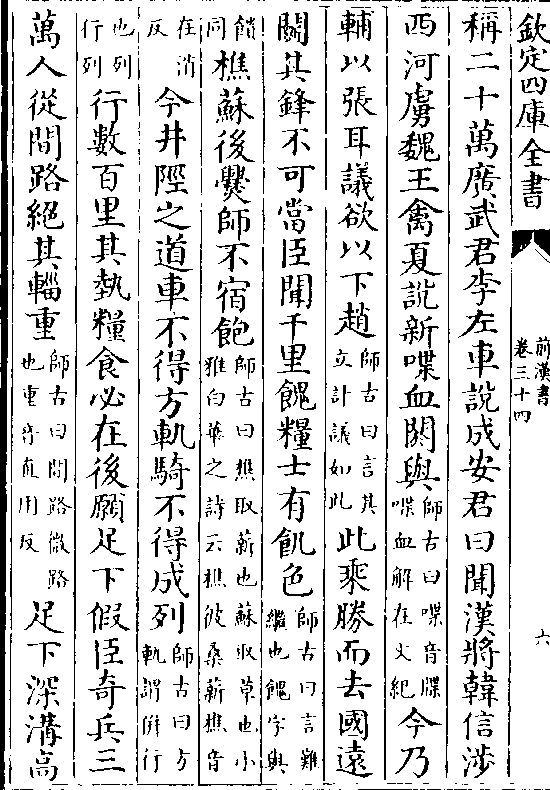 欽定四庫全書
前漢書
卷三十四
六
稱二十萬廣武君李左車說成安君曰聞漢將韓信涉
西河虜魏王禽夏說新喋血閼與師古曰喋音牒喋血解在文紀今乃
輔以張耳議欲以下趙師古曰言其立計議如此此乘勝而去國遠
闘其鋒不可當臣聞千里餽糧士有飢色師古曰言難繼也餽字與
饋同樵蘇後爨師不宿飽師古曰樵取薪也蘇取草也小雅白華之詩云樵彼桑薪樵音
在消反今井陘之道車不得方軌騎不得成列師古曰方軌謂併行
也列行列行數百里其執糧食必在後願足下假臣奇兵三
萬人從間路絕其輜重師古曰間路微路也重音直用反足下深溝高